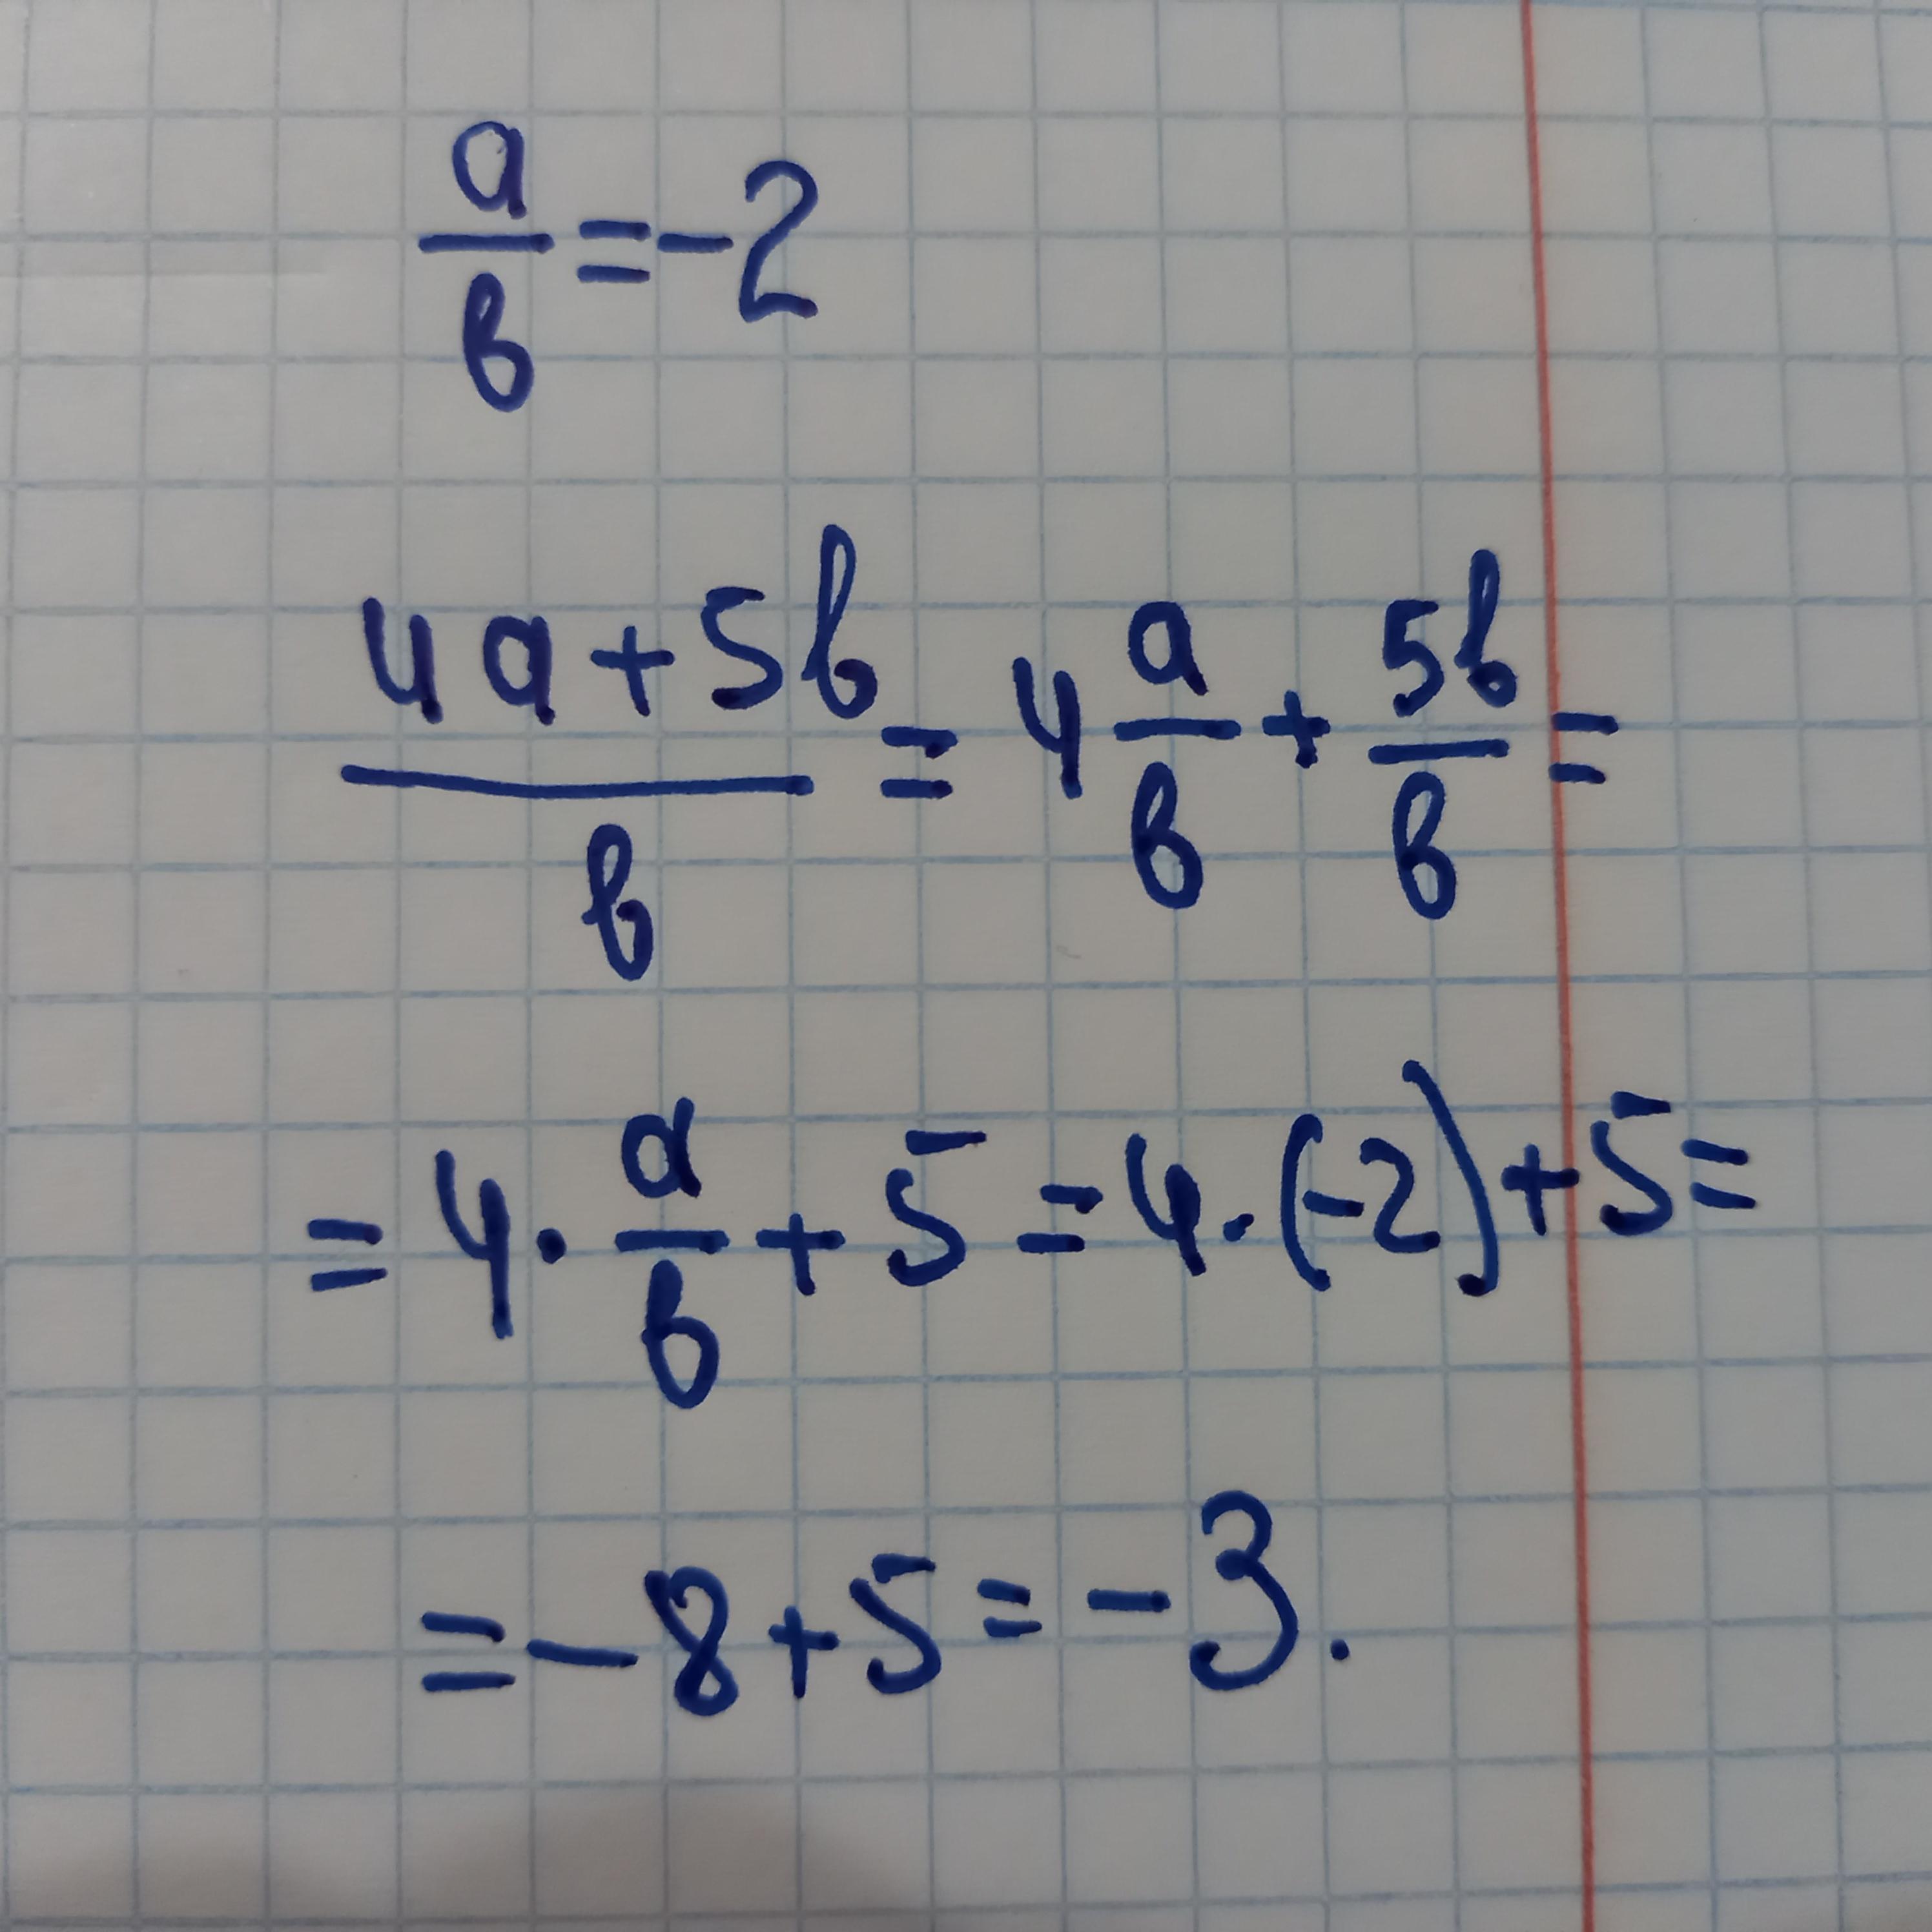 a/b = -2
(4a + 5b)/b = 4 a/b + 5b/b =
= 4 · a/b + 5 = 4 · (-2) + 5 =
= -8 + 5 = -3.